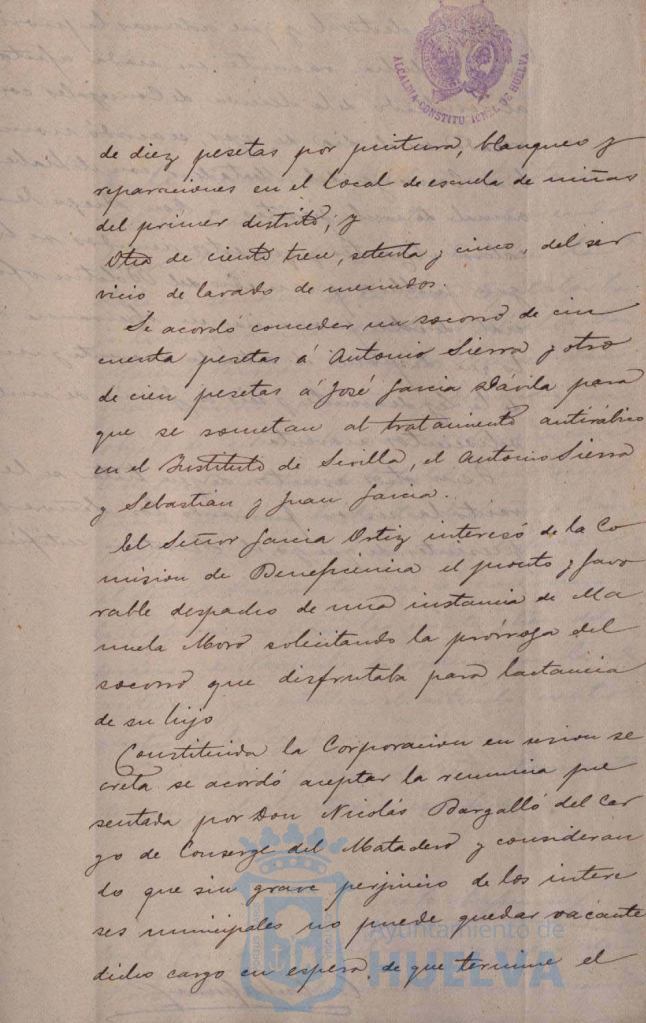 ALCALDIA-CONSTITUCIONAL DE HUELVA
de diez pesetas por pintura, blanqueo y
reparaciones en el local de escuela de niñas
del primer distrito; y
Otra de ciento trece, setenta y cinco, del ser
vicio de lavado de menudos.
Se acordó conceder un socorro de cin
cuenta pesetas á Antonio Sierra y otro
de cien pesetas á José Garcia Dávila para
que se sometan al tratamiento antirábico
en el Instituto de Sevilla, el Antonio Sierra
y Sebastián y Juan Garcia.
El Señor Garcia Ortiz interesó de la Co
mision de Beneficencia el pronto y favo
rable despacho de una instancia de Ma
nuela Moro solicitando la prórroga del
socorro que disfrutaba para lactancia
de su hijo
Constituida la Corporacion en sesion se
creta se acordó aceptar la renuncia pre
sentada por Don Nicolás Bargalló del car
go de Conserge del Matadero y consideran
do que sin grave perjuicio de los intere
ses municipales no puede quedar vacante
dicho cargo en espera de que termine el
Ayuntamiento de
HUELVA